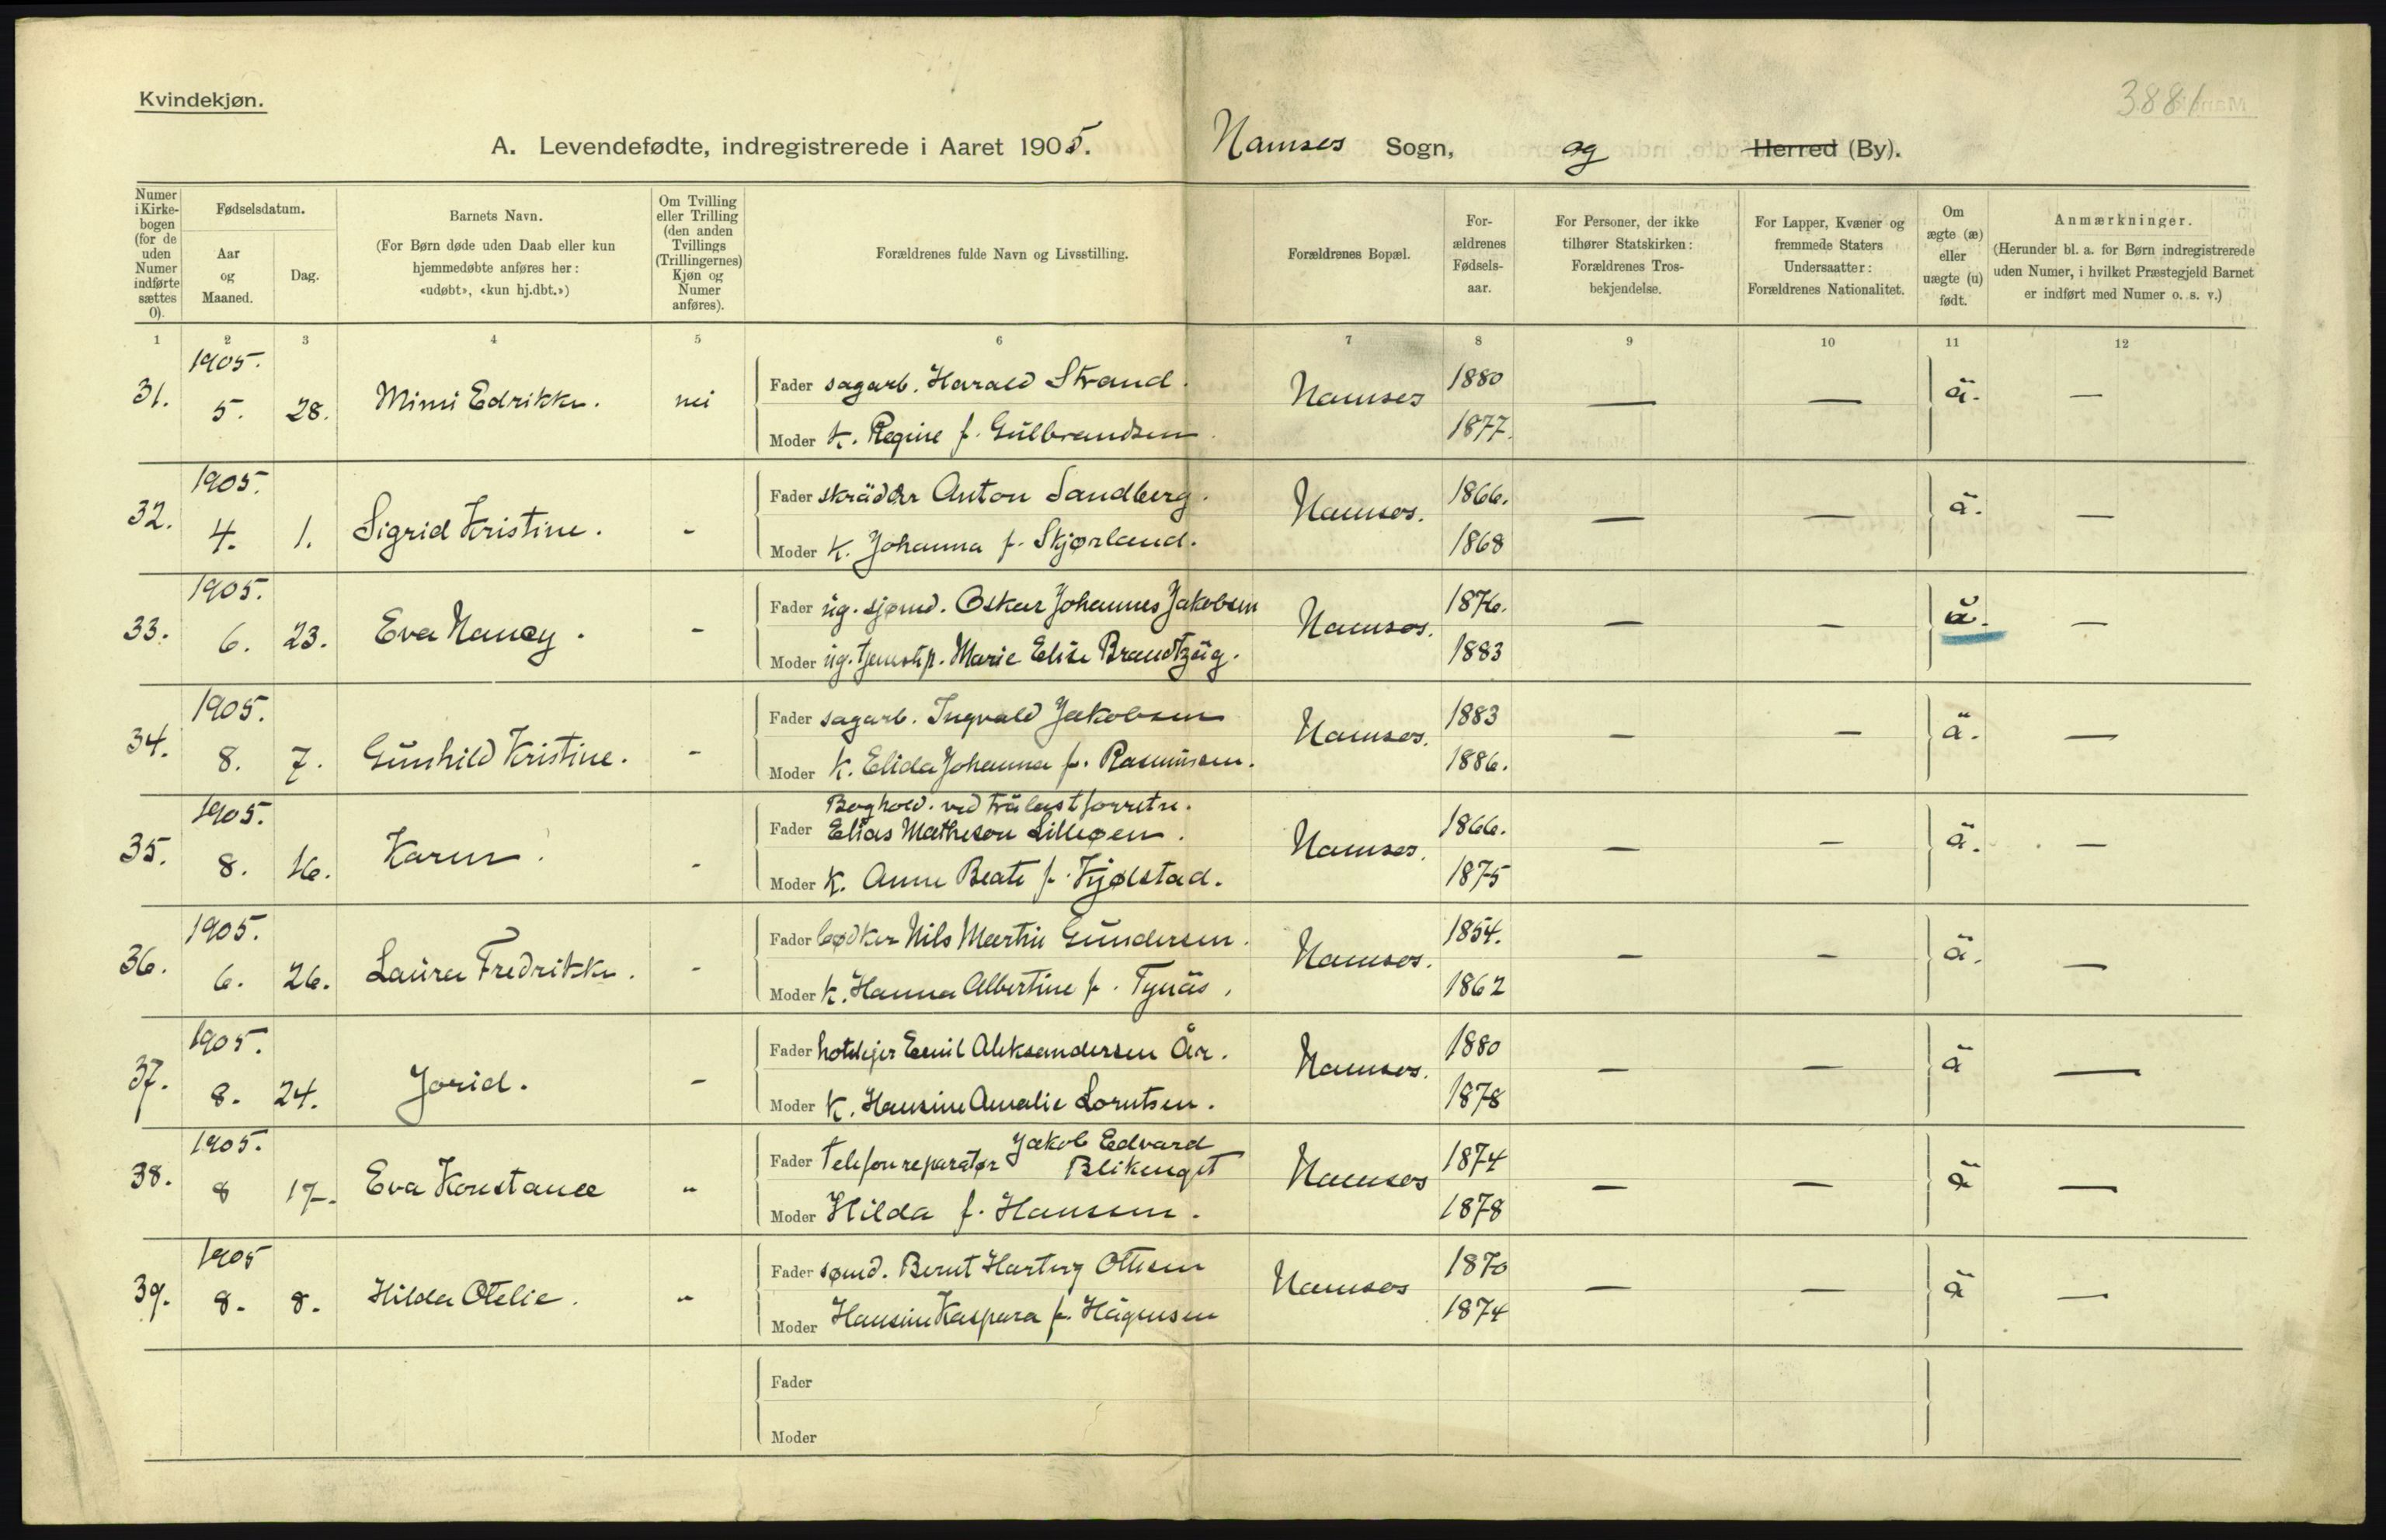 Kvindekjøn.
3881
A. Levendefødte, indregistrerede i Aaret 1905. Namsos Sogn, og Herred (By).
Numer i Kirkebogen (for de uden Numer indførte sættes 0).
Fødselsdatum.
Aar og Maaned.
Dag.
Barnets Navn.
(For Børn døde uden Daab eller kun hjemmedøbte anføres her: «udøbt», «kun hj.dbt.»)
Om Tvilling eller Trilling (den anden Tvillings (Trillingernes) Kjøn og Numer anføres).
Forældrenes fulde Navn og Livsstilling.
Forældrenes Bopæl.
Forældrenes Fødselsaar.
For Personer, der ikke tilhører Statskirken: Forældrenes Trosbekjendelse.
For Lapper, Kvæner og fremmede Staters Undersaatter: Forældrenes Nationalitet.
Om ægte (æ) eller uægte (u) født.
Anmærkninger.
(Herunder bl. a. for Børn indregistrerede uden Numer, i hvilket Præstegjeld Barnet er indført med Numer o. s. v.)
1 2 3 4 5 6 7 8 9 10 11 12
1905.
31. 5. 28. Mimi Edrikke. nei Fader sagarb. Harald Strand. Namsos 1880 — — ä. —
Moder k. Regine f. Gulbrandsen. 1877.
1905.
32. 4. 1. Sigrid Kristine. - Fader skrädder Anton Sandberg. Namsos. 1866. — — ä. —
Moder k. Johanna f. Skjørland. 1868
1905.
33. 6. 23. Eva Nancy. - Fader ug. sjømd. Oskar Johannes Jakobsen Namsos. 1876. — — ŭ. —
Moder ug. tjenestp. Marie Elise Brandtzäg. 1883
1905.
34. 8. 7. Gunhild Kristine. - Fader sagarb. Ingvald Jakobsen Namsos. 1883 — — ä. —
Moder k. Elida Johanna f. Rasmussen. 1886.
1905. Boghold. ved trälastforretn.
35. 8. 16. Karen. - Fader Elias Matheson Lilleøen. Namsos. 1866. — — ä. —
Moder k. Anne Beate f. Kjølstad. 1875
1905.
36. 6. 26. Laura Fredrikke. - Fader bødker Nils Martin Gundersen. Namsos. 1854. — — ä. —
Moder k. Hanna Albertine f. Tynäs. 1862
1905.
37. 8. 24. Jorid. - Fader hotelejer Emil Aleksandersen År. Namsos. 1880 — — ä —
Moder k. Hansine Amalie Lorntsen. 1878
1905. Jakob Edvard
38. 8 17. Eva Konstance - Fader Telefonreparatør Blikenget Namsos 1874 — — ä —
Moder Hilda f. Hansen. 1878
1905
39. 8. 8. Hilda Otelie. - Fader sømd. Bernt Hartvig Ottesen Namsos 1870 — — ä —
Moder Hansine Kaspara f. Hågensen 1874
Fader
Moder